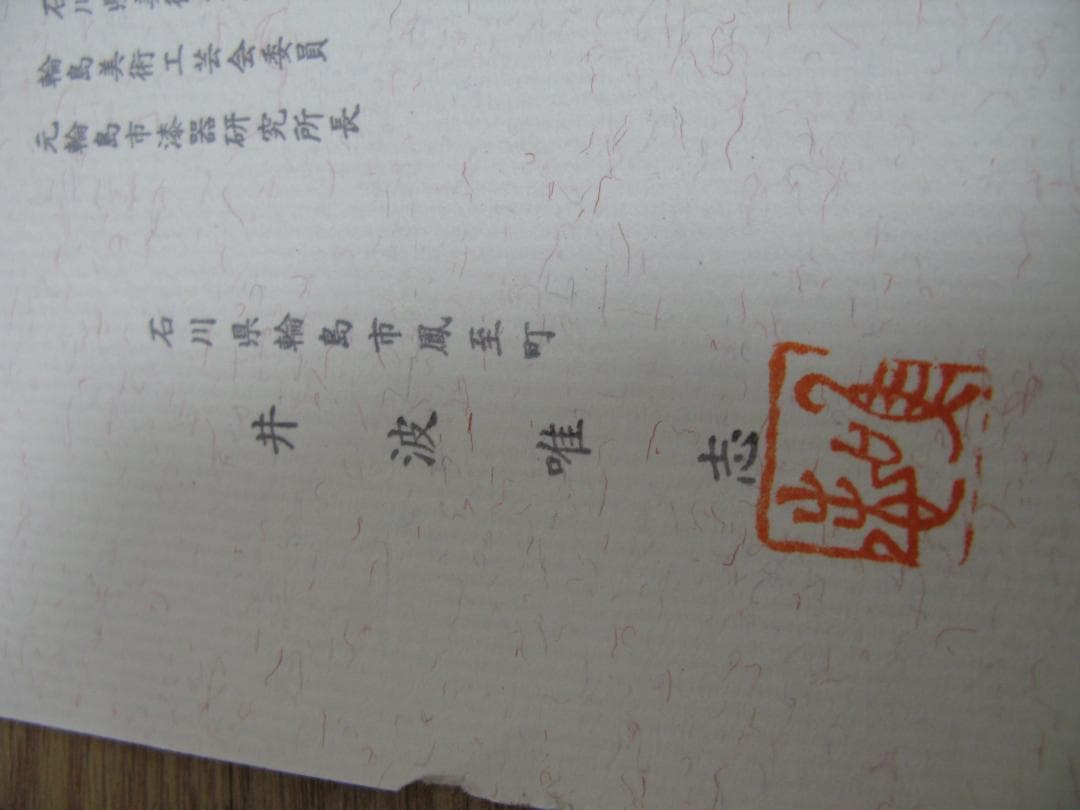 石川県美術
輪島美術工芸会委員
元輪島市漆器研究所長
石川県輪島市鳳至町
井波唯志